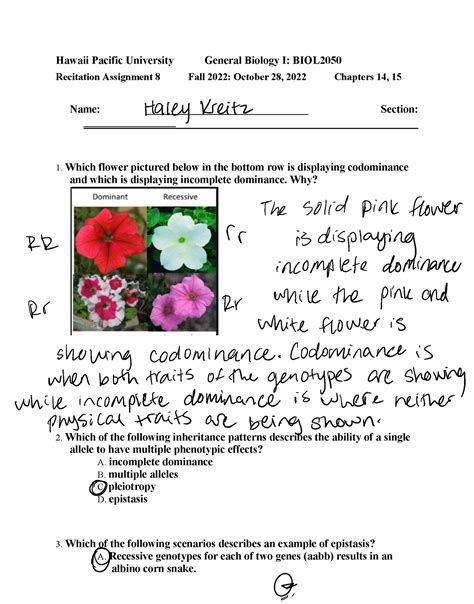 Hawaii Pacific University General Biology I: BIOL2050
Recitation Assignment 8 Fall 2022: October 28, 2022 Chapters 14, 15
Name: Haley Kreitz Section:
1. Which flower pictured below in the bottom row is displaying codominance
and which is displaying incomplete dominance. Why?
Dominant Recessive
RR
rr
Rr
Rr
The solid pink flower
is displaying
incomplete dominance
while the pink and
white flower is
showing codominance. Codominance is
when both traits of the genotypes are showing
while incomplete dominance is where neither
physical traits are being shown.
2. Which of the following inheritance patterns describes the ability of a single
allele to have multiple phenotypic effects?
A. incomplete dominance
B. multiple alleles
C. pleiotropy
D. epistasis
3. Which of the following scenarios describes an example of epistasis?
A. Recessive genotypes for each of two genes (aabb) results in an
albino corn snake.